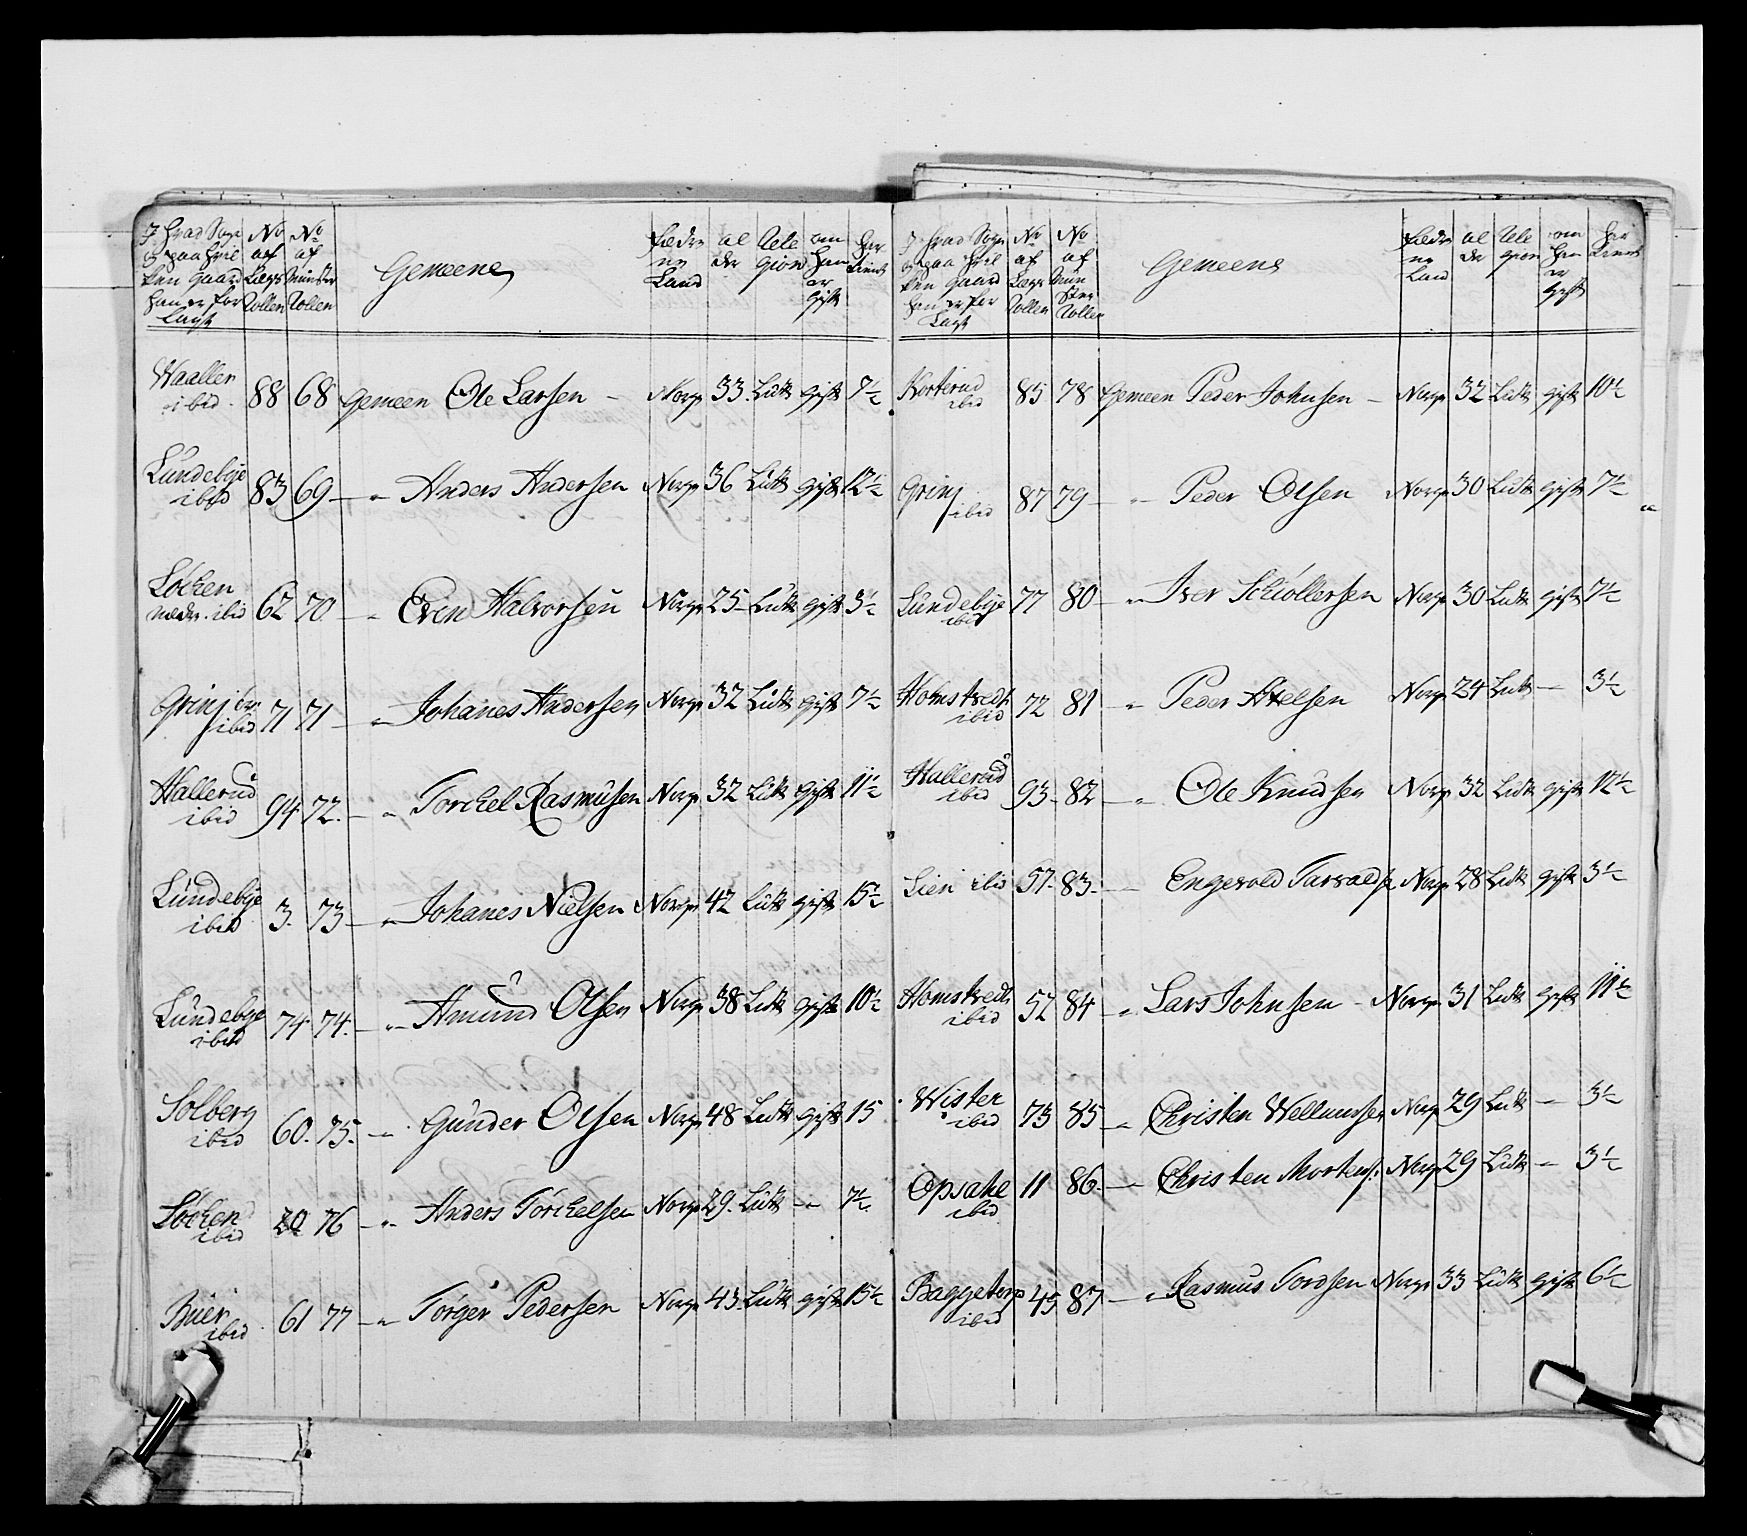 I hvad Sogn No No
og paa hvil af af
ken Gaard Lægs Munster
han er for Rollen Rollen
Lagt
Gemeene
fædre al Reli om har
ne der gion han tient
Land er
gift
Waaller
ibid 88 68 Gemeen Ole Larsen - Norge 33 Luth gift 7½
Lundebye
ibid 83 69 — " Anders Andersen Norge 36 Luth gift 12½
Löchen
nedr. ibid 62 70 — " Even Halvorsen Norge 25 Luth gift 3½
Grinj
ibid 71 71 — " Johanes Andersen Norge 32 Luth gift 7½
Hallerud
ibid 94 72. — " Torchel Rasmusen Norge 32 Luth gift 11½
Lundebye
ibid 3. 73 — " Johanes Nielsen Norge 42 Luth gift 15½
Lundebye
ibid 74 74. — " Amund Olsen Norge 38 Luth gift 10½
Solberg
ibid 60. 75. — Gunder Olsen Norge 48 Luth gift 15
Löchen
ibid 20 76 — " Anders Törchelsen Norge 29. Luth — 7½
Buer
ibid 61 77 — " Törger Pedersen Norge 43 Luth gift 15½
I hvad Sogn No No
og paa hvil af af
ken Gaard Lægs Mun
han er for Rollen ster
Lagt Rollen
Gemeene
fædre al Reli om har
ne der gion han tient
Land er
gift
Korterud
ibid 85 78 Gemeen Peder Johnsen — Norge 32 Luth gift 10½
Grinj
ibid 87 79 — " Peder Olsen Norge 30 Luth gift 7½
Lundebye
ibid 77 80 — " Iver Schiöllersen Norge 30 Luth gift 7½
Homstvedt
ibid 72 81 — " Peder Axelsen Norge 24 Luth — 3½
Hallerud
ibid 93 - 82 — " Ole Knudsen Norge 32 Luth gift 12½
Lien ibid 57. 83. — Engevold Tarvalds Norge 28 Luth gift 3½
Homstvedt
ibid 52 84 — " Lars Johnsen - Norge 31 Luth gift 11½
Wister
ibid 73 85 — " Christen Wellumsen Norge 29 Luth — 3½
Opsahe
ibid 11 86. — Christen Mortens: Norge 29 Luth — 3½
Baggetorp
ibid 45 87 — " Rasmus Tordsen Norge 33 Luth gift 6½